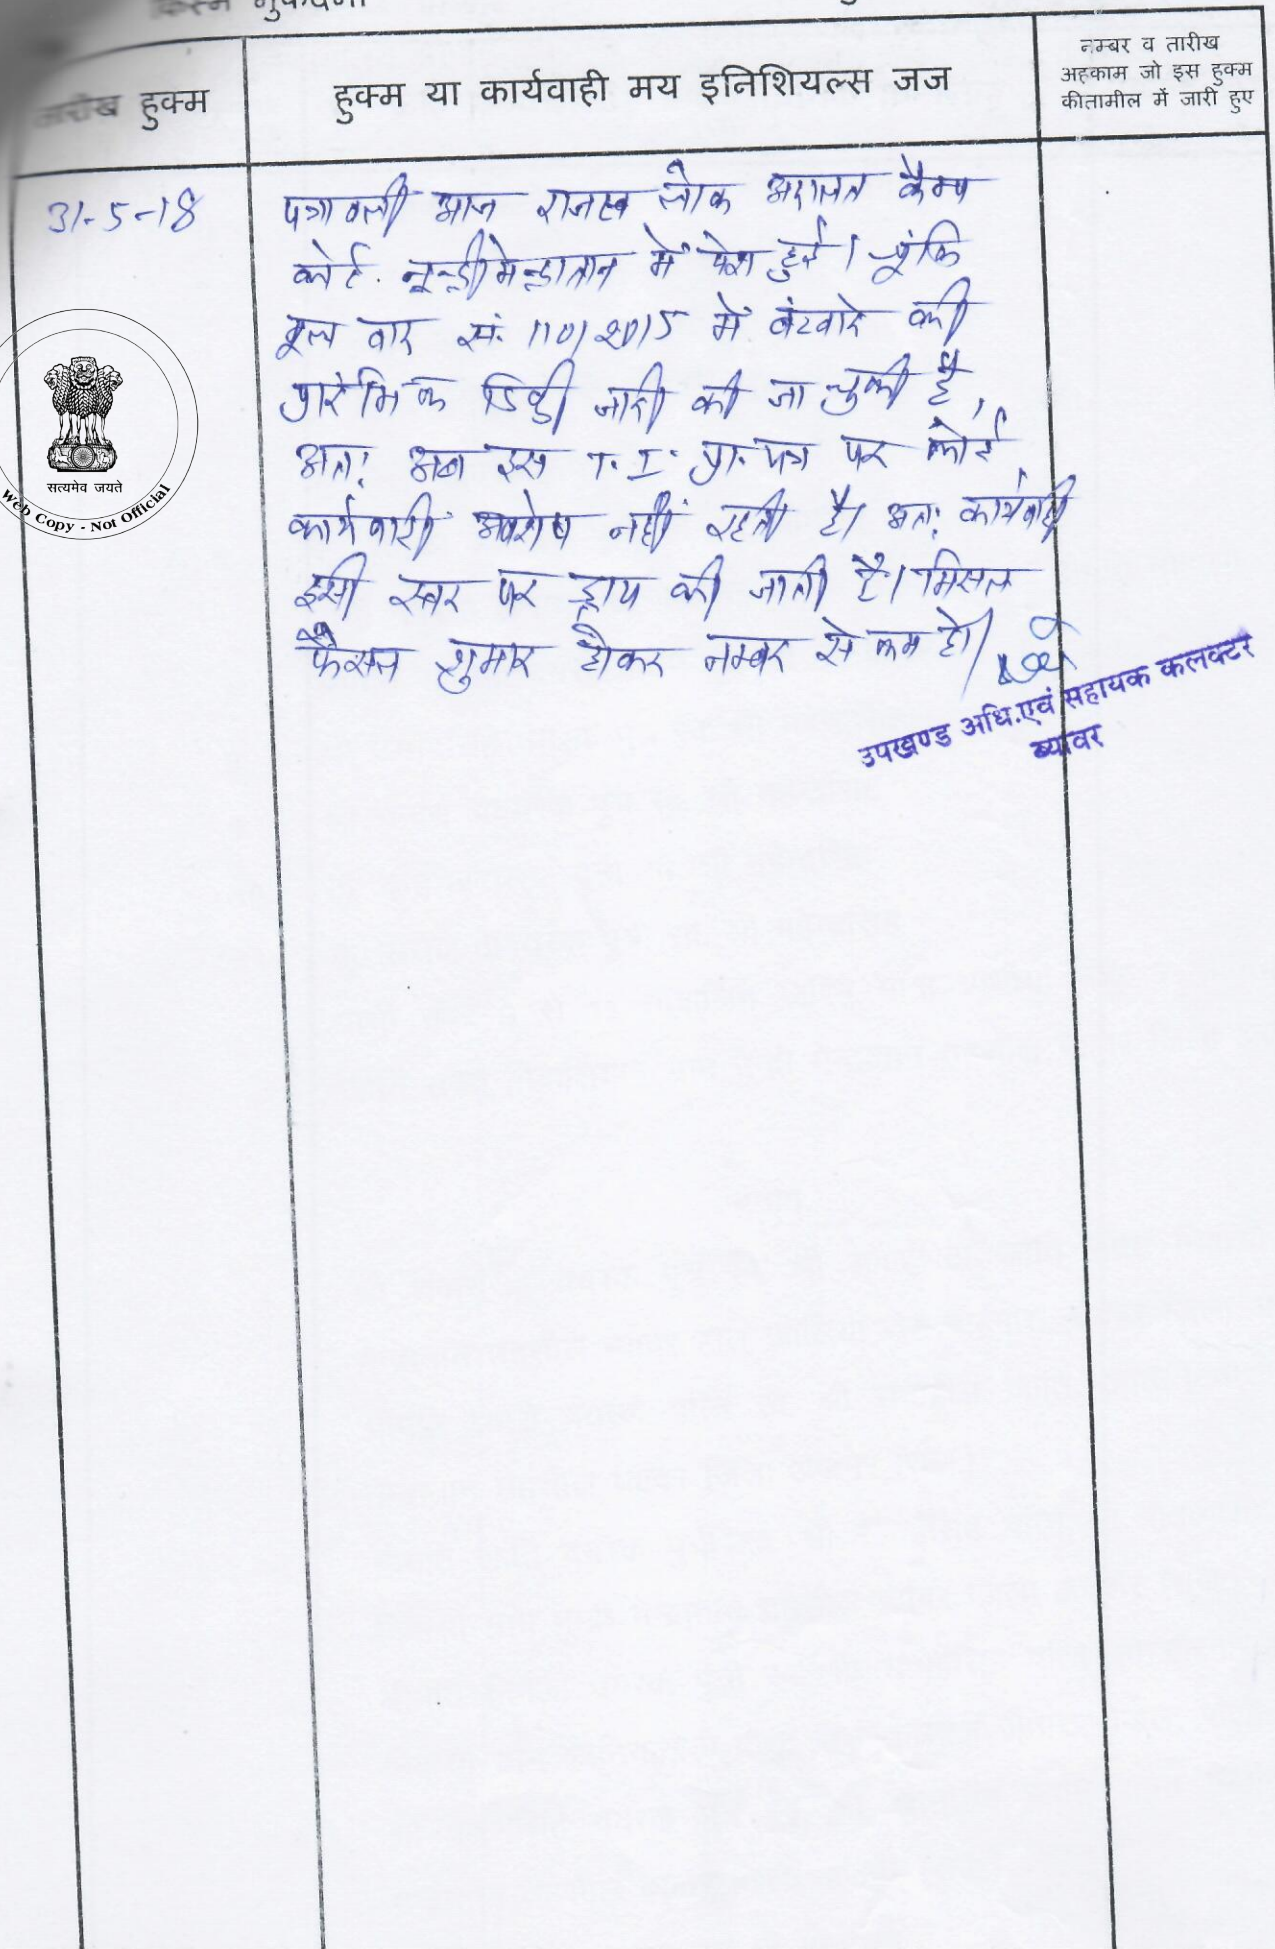 किस्म मुकदमा
तारीख हुक्म
हुक्म या कार्यवाही मय इनिशियल्स जज
नम्बर व तारीख
अहकाम जो इस हुक्म
कीतामील में जारी हुए
31-5-18
पत्रावली आज राजस्व लोक अदालत कैम्प
कोर्ट में पेश हुई। चूंकि
मूल वाद सं. 110/2015 में बंटवारे की
प्रारंभिक डिक्री जारी की जा चुकी है,
अतः अब इस T.I. प्रा.पत्र पर कोई
कार्यवाही अवशेष नहीं रहती है। अतः कार्यवाही
इसी स्तर पर ड्राप की जाती है। मिसल
फैसल शुमार होकर नम्बर से कम हो।
उपखण्ड अधि.एवं सहायक कलक्टर
ब्यावर
सत्यमेव जयते
Web Copy - Not Official